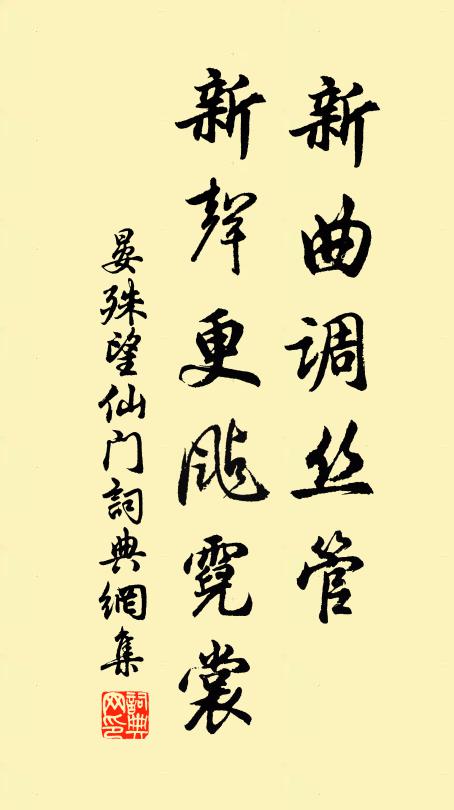 新曲调丝管
新聲更颭霓裳
晏殊望仙门詞典網集
詞典网印